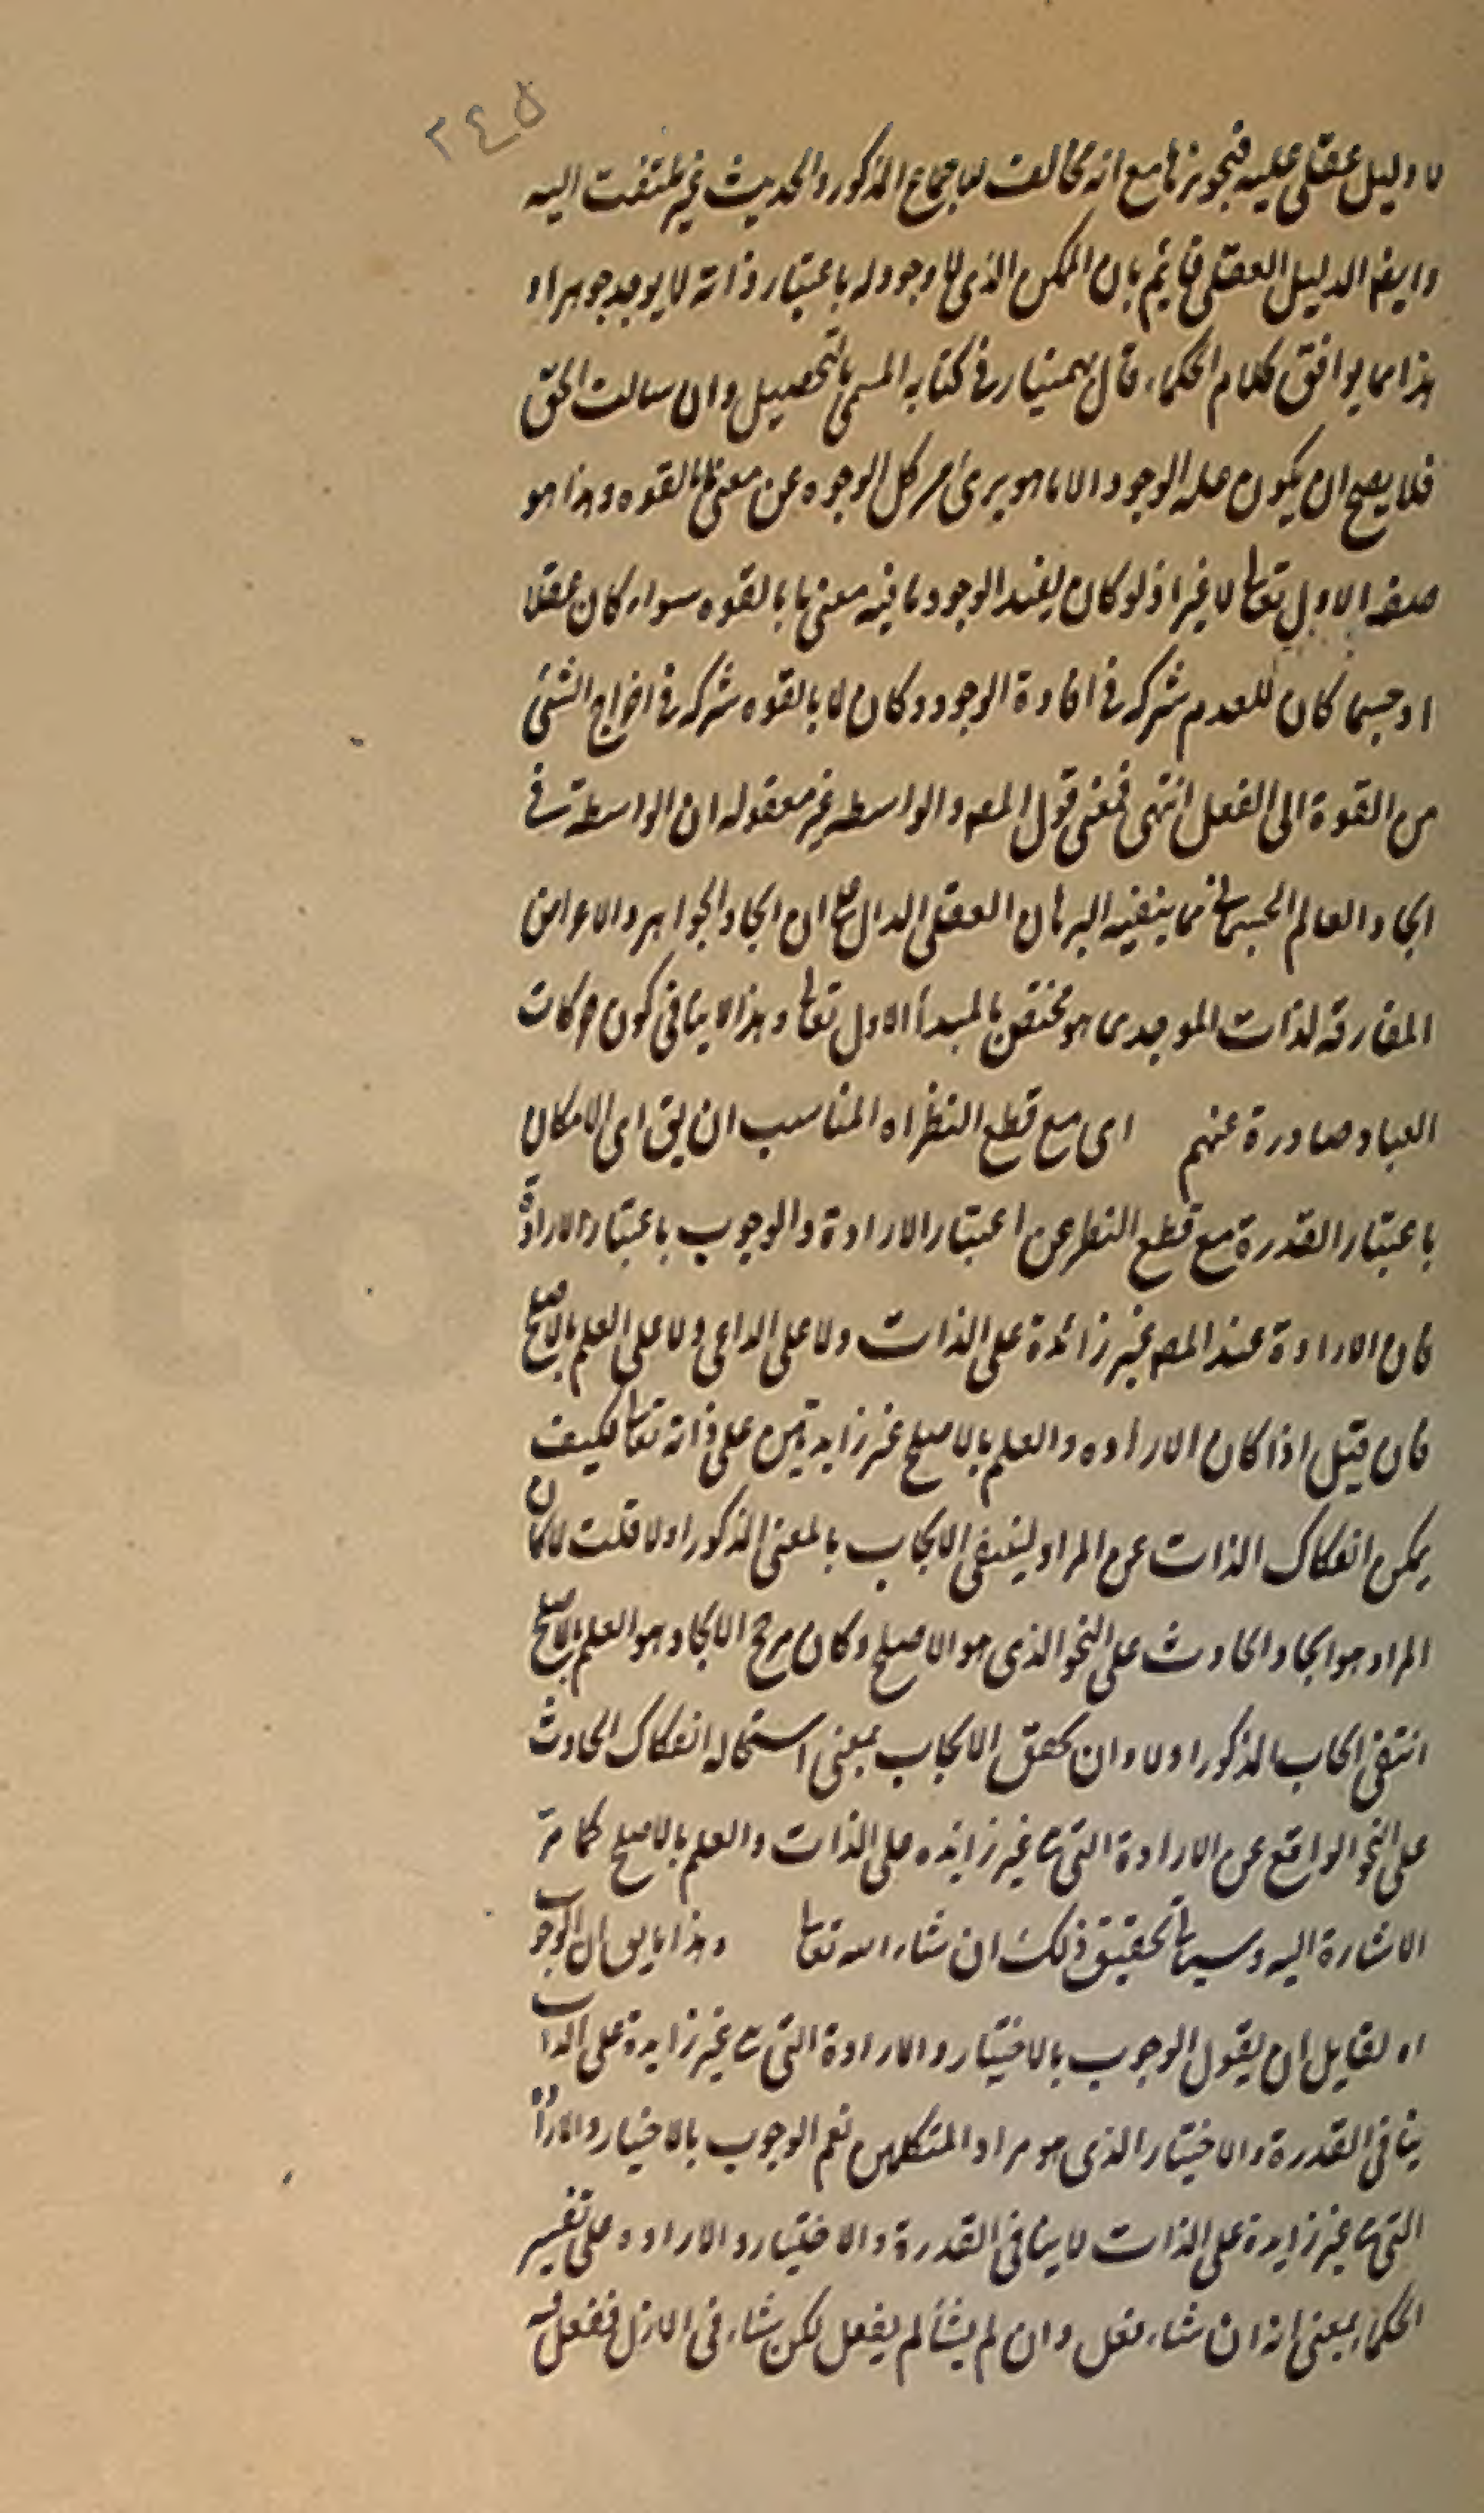 ٢٤٥
لا دليل عقلى عليه فتجويزها مع انه مخالف للاجماع المذكور والحديث غير ملتفت اليه
وايضا الدليل العقلى قايم بان الممكن الذى لا وجود له باعتبار ذاته لا يوجد جوهرا و
هذا مما يوافق كلام الحكماء قال بهمنيار فى كتابه المسمى بالتحصيل وان سالت الحق
فلا يصح ان يكون علة الوجود الا ما هو برى من كل الوجوه عن معنى ما بالقوه وهذا هو
صفه الاول تعالى لا غير اذ لو كان يفيد الوجود ما فيه معنى ما بالقوه سواء كان عقلا
او جسما كان للعدم شركه فى افادة الوجود وكان لما بالقوه شركه فى اخراج الشئ
من القوة الى الفعل انتهى فمعنى قول المصه والواسطه غير معقوله ان الواسطة فى
ايجاد العالم الجسمانى مما ينفيه البرهان العقلى الدال على ان ايجاد الجواهر والاعراض
المفارقه لذات الموجد مما هو مختص بالمبدأ الاول تعالى وهذا لا ينافى كون حركات
العباد صادرة عنهم اى مع قطع النظر اه المناسب ان يق اى الامكان
باعتبار القدرة مع قطع النظر عن اعتبار الارادة والوجوب باعتبار الارادة
فان الارادة عند المصه غير زائدة على الذات ولا على الداعى ولا على العلم بالاصلح
فان قيل اذا كان الاراده والعلم بالاصلح غير زايدتين على ذاته تعالى فكيف
يمكن انفكاك الذات عن المراد لينتفى الايجاب بالمعنى المذكور اولا قلت لما كان
المراد هو ايجاد الحادث على النحو الذى هو الاصلح وكان مرجح الايجاد هو العلم بالاصلح
انتفى الايجاب المذكور اولا وان تحقق الايجاب بمعنى استحاله انفكاك الحادث
على النحو الواقع عن الارادة التى هى غير زايده على الذات والعلم بالاصلح كما مر
الاشارة اليه وسياتى تحقيق ذلك ان شاء الله تعالى وهذا ما يق ان الوجوب
اه لقايل ان يقول الوجوب بالاختيار والارادة التى هى غير زايدة على الذات
ينافى القدرة والاختيار الذى هو مراد المتكلمين نعم الوجوب بالاختيار والارادة
التى هى غير زايدة على الذات لا ينافى القدرة والاختيار والاراده على تفسير
الحكماء بمعنى انه ان شاء فعل وان لم يشأ لم يفعل لكن شاء فى الازل ففعل فيه